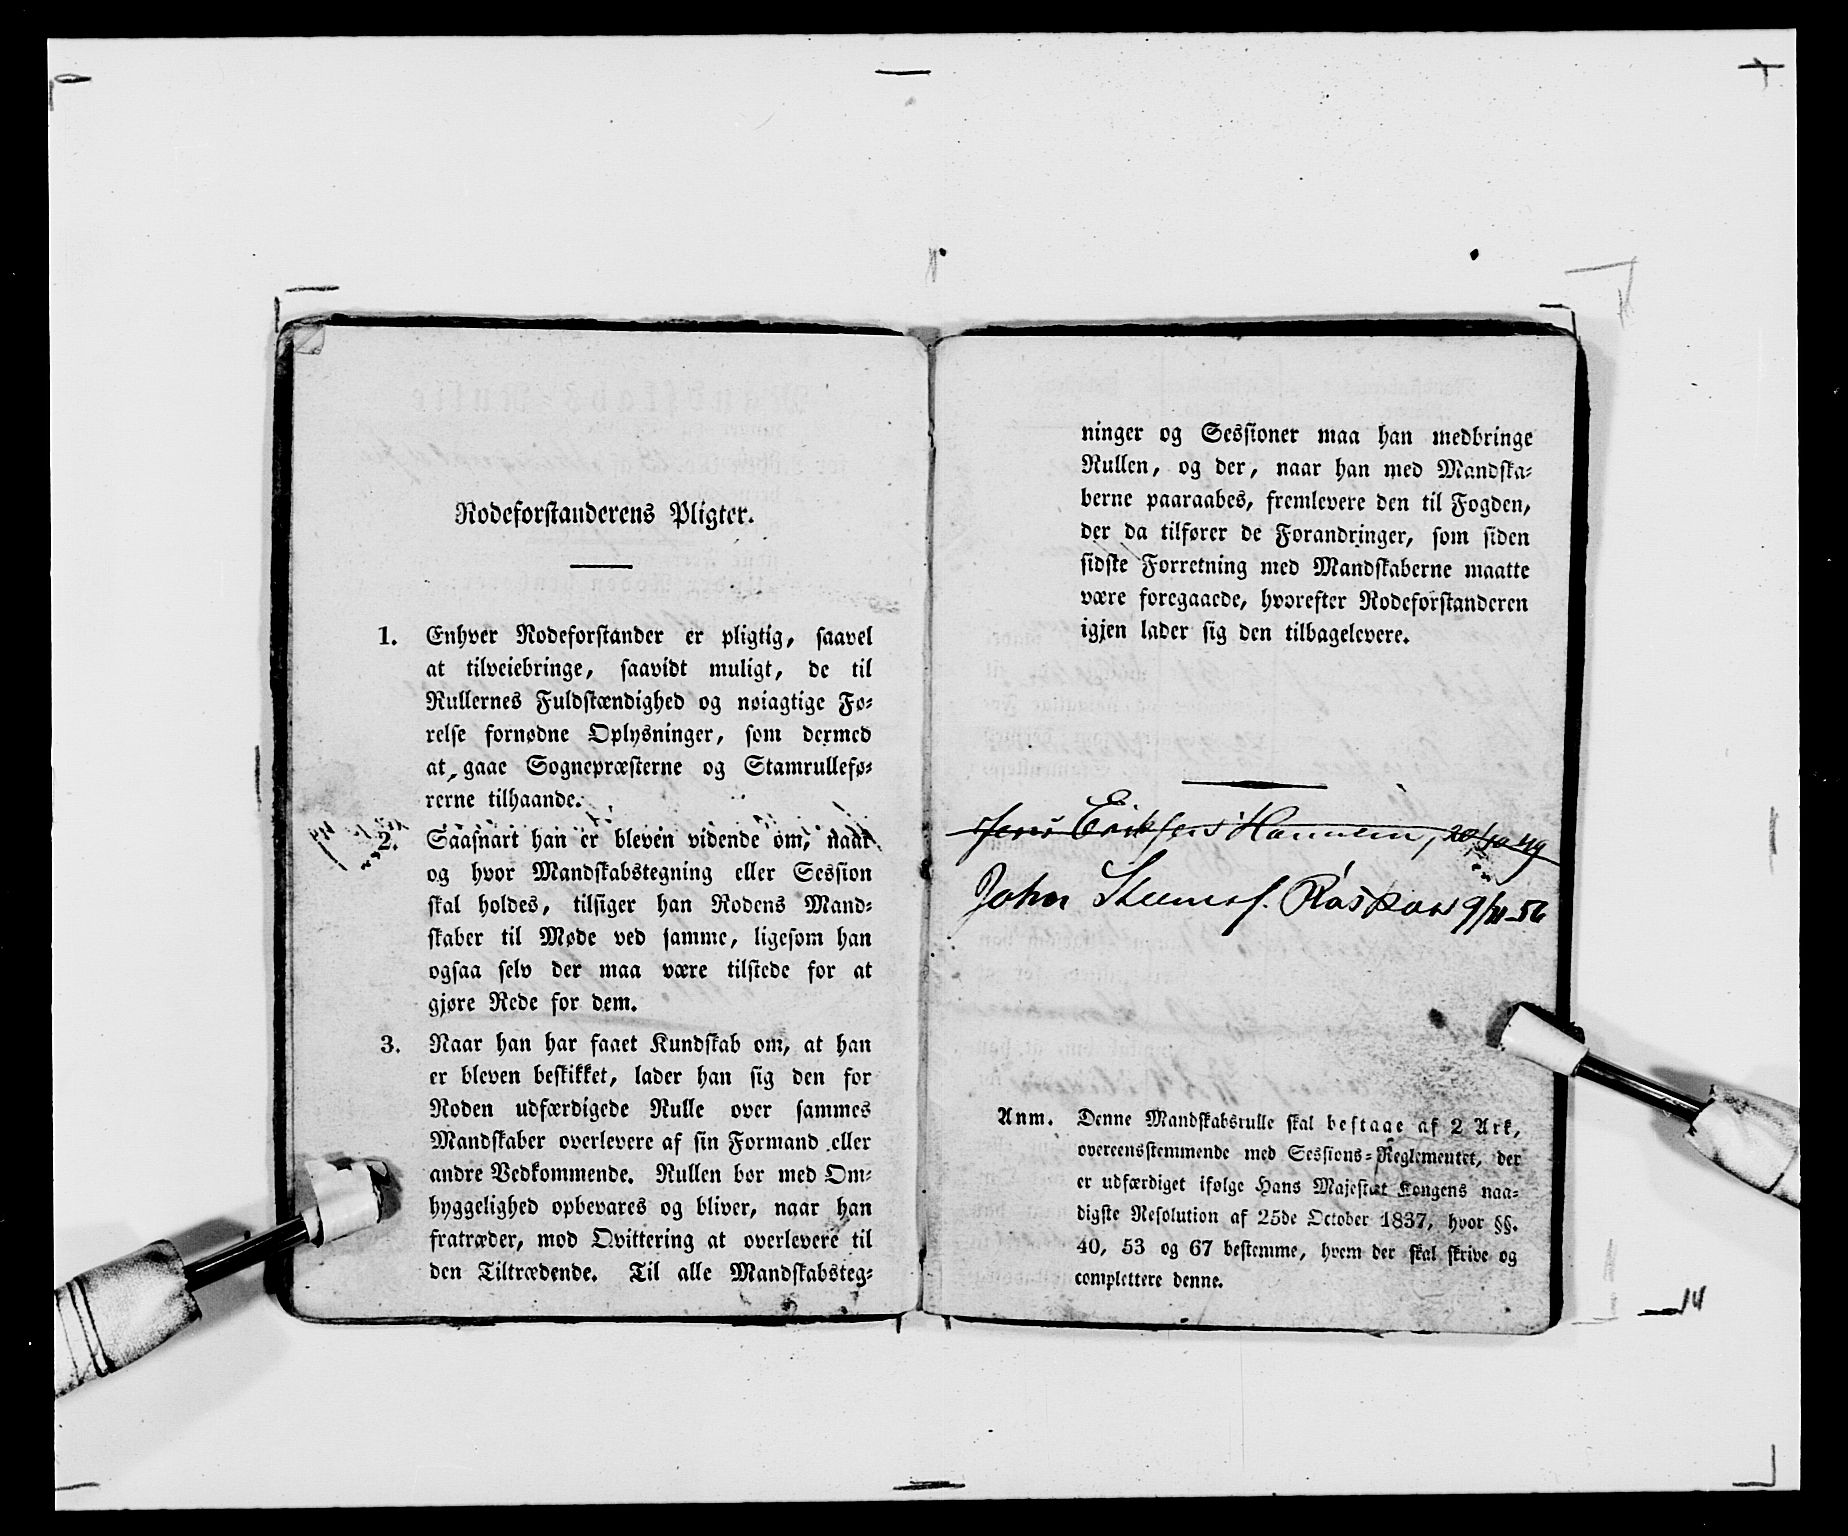 Rodeforstanderens Pligter.
1. Enhver Rodeforstander er pligtig, saavel
at tilveiebringe, saavidt muligt, de til
Rullernes Fuldstændighed og nøiagtige Fø-
relse fornødne Oplysninger, som dermed
at gaae Sognepræsterne og Stamrullefø-
rerne tilhaande.
2. Saasnart han er bleven vidende om, naar
og hvor Mandskabstegning eller Session
skal holdes, tilsiger han Rodens Mand-
skaber til Møde ved samme, ligesom han
ogsaa selv der maa være tilstede for at
gjøre Rede for dem.
3. Naar han har faaet Kundskab om, at han
er bleven beskikket, lader han sig den for
Roden udfærdigede Rulle over sammes
Mandskaber overlevere af sin Formand eller
andre Vedkommende. Rullen bør med Om-
hyggelighed opbevares og bliver, naar han
fratræder, mod Qvittering at overlevere til
den Tiltrædende. Til alle Mandskabsteg-
ninger og Sessioner maa han medbringe
Rullen, og der, naar han med Mandska-
berne paaraabes, fremlevere den til Fogden,
der da tilfører de Forandringer, som siden
sidste Forretning med Mandskaberne maatte
være foregaaede, hvorefter Rodeforstanderen
igjen lader sig den tilbagelevere.
Jens Eriksens
John 9/11-56
Anm. Denne Mandskabsrulle skal bestaae af 2 Ark,
overeensstemmende med Sessions-Reglementet, der
er udfærdiget ifølge Hans Majestæt Kongens naa-
digste Resolution af 25de October 1837, hvor §§.
40, 53 og 67 bestemme, hvem der skal skrive og
complettere denne.
14